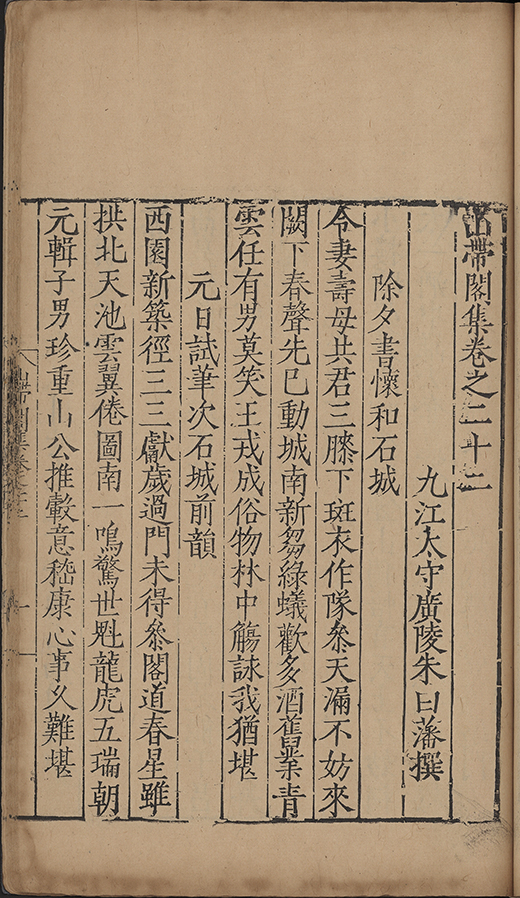 山帶閣集卷之二十二
九江太守廣陵朱曰藩撰
除夕書懷和石城
令妻壽母共君三膝下斑衣作隊叅天漏不妨來
闕下春聲先已動城南新芻綠蟻歡多酒舊業青
雲任有男莫笑王戎成俗物林中觴詠我猶堪
元日試筆次石城前韻
西園新築徑三三獻歲過門未得叅閣道春星雖
拱北天池雲翼倦圖南一鳴驚世魁龍虎五瑞朝
元輯子男珍重山公推轂意嵇康心事久難堪